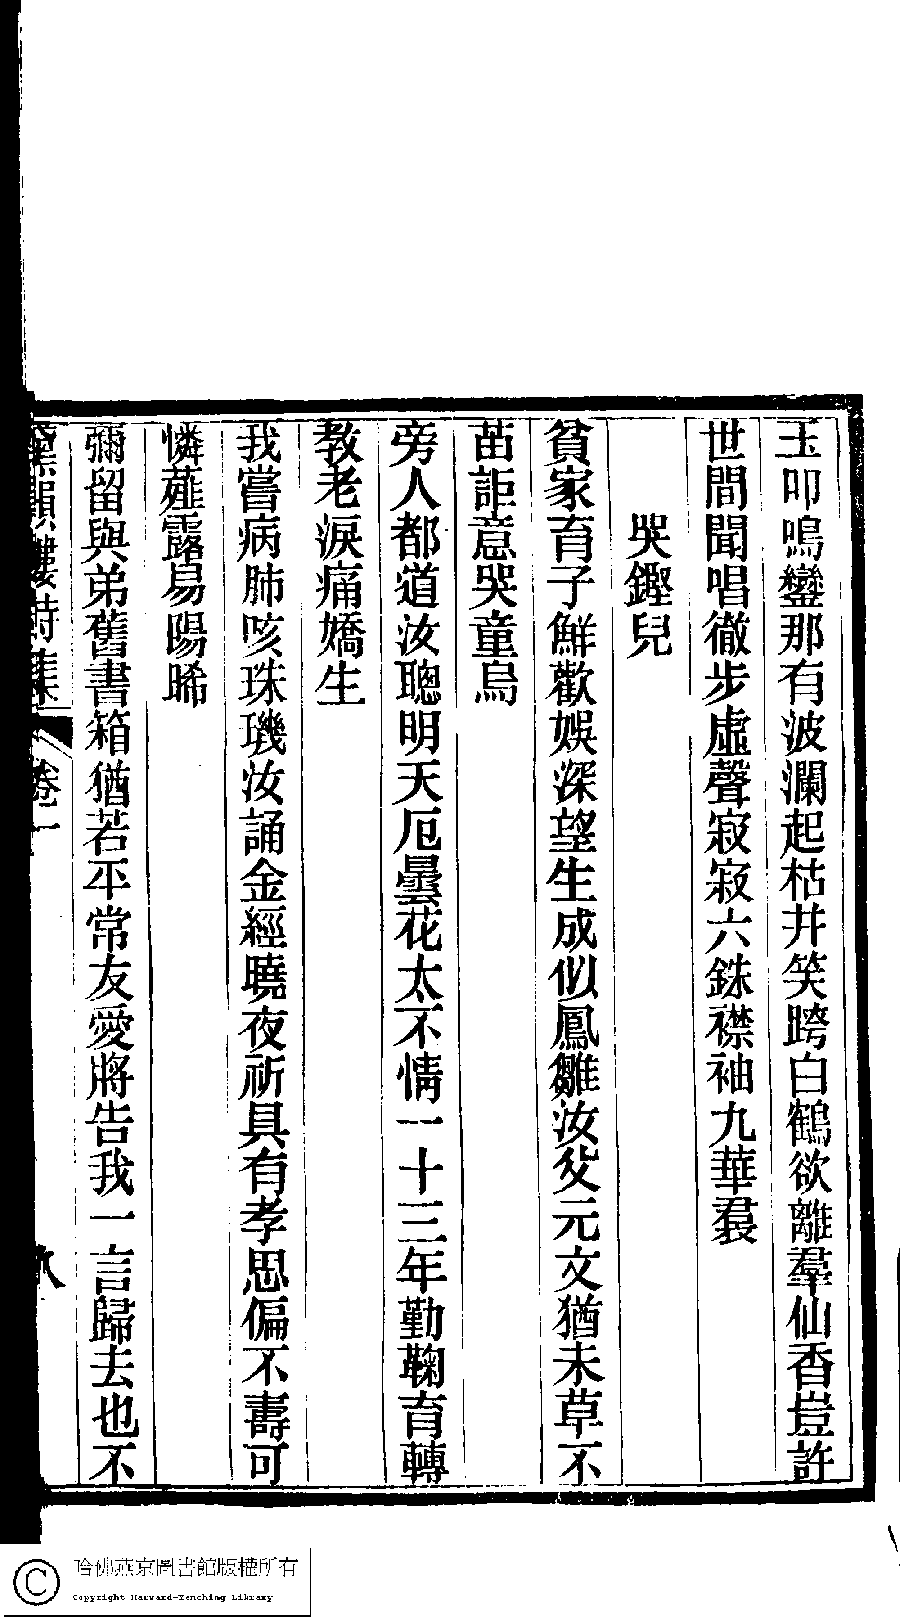 玉叩鳴鑾那有波瀾起枯井笑跨白鶴欲離羣仙香豈許
世間聞唱徹步虛聲寂寂六銖襟袖九華裠
哭鏗兒
貧家育子鮮歡娛深望生成似鳳雛汝父元文猶未草不
苗詎意哭童烏
旁人都道汝聰明天厄曇花太不情一十三年勤鞠育轉
教老淚痛嬌生
我嘗病肺咳珠璣汝誦金經曉夜祈具有孝思偏不壽可
憐薤露易陽晞
彌留與弟舊書箱猶若平常友愛將告我一言歸去也不
樓詩集
卷一
八
哈佛燕京圖書館版權所有
Copyright Harvard-Yenching Library